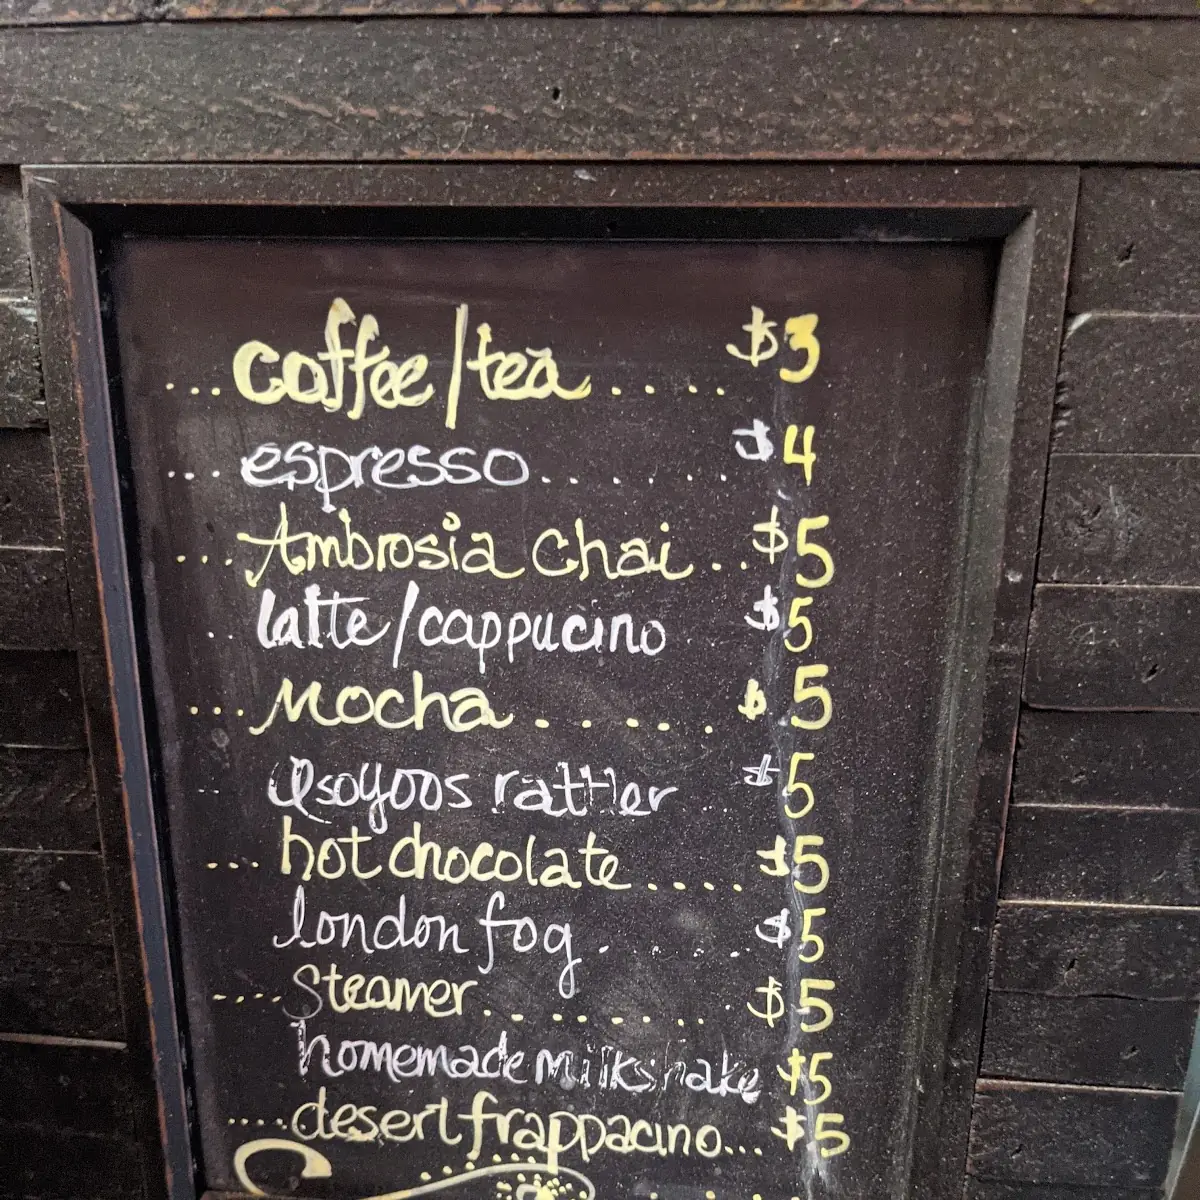 ... coffee/tea ..... $3
... espresso ....... $4
... Ambrosia Chai .. $5
... latte/cappucino $5
... Mocha ..... $5
... Osoyoos rattler $5
... hot chocolate .... $5
london fog . . . . $5
.... Steamer ........ $5
homemade milkshake $5
.... desert frappacino... $5